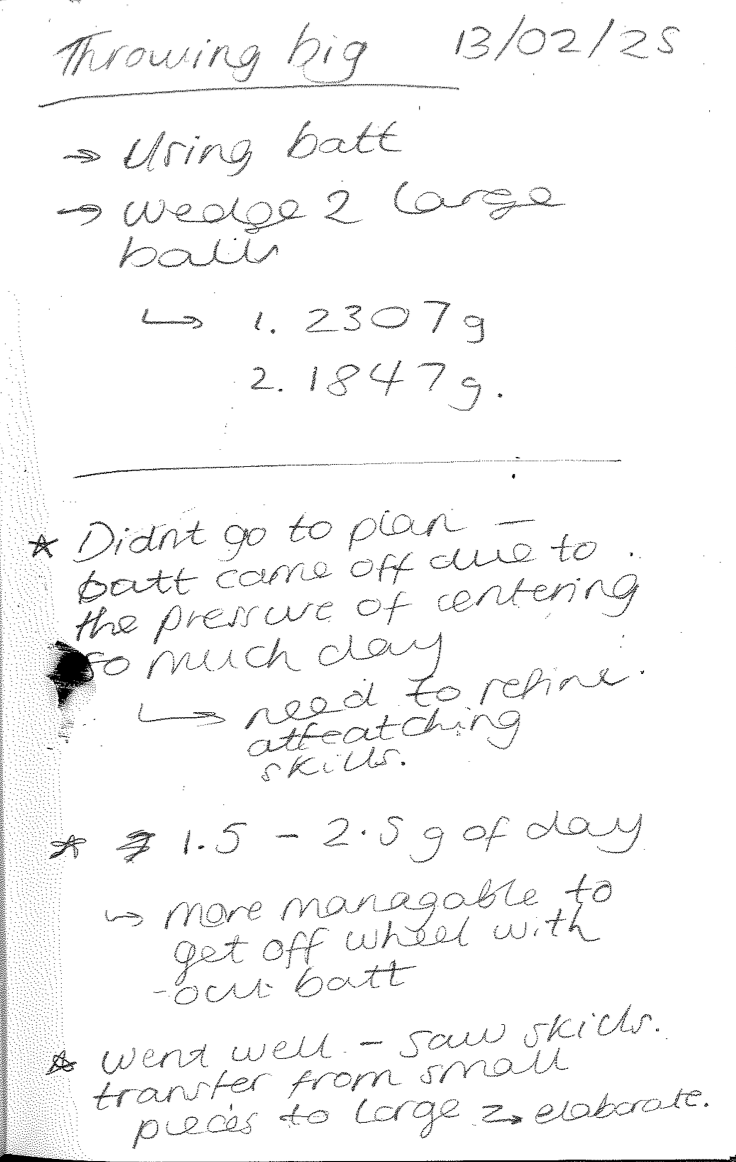 Throwing big 13/02/25
→ Using batt
→ wedge 2 large
balls
↳ 1. 2307g
2. 1847g.
☆ Didnt go to plan –
batt came off due to
the pressure of centering
so much clay
↳ need to refine
skills.
☆ 1.5 – 2.5 g of clay
↳ more managable to
get off wheel with
-out batt
☆ went well – saw skills
transfer from small
pieces to large → elaborate.